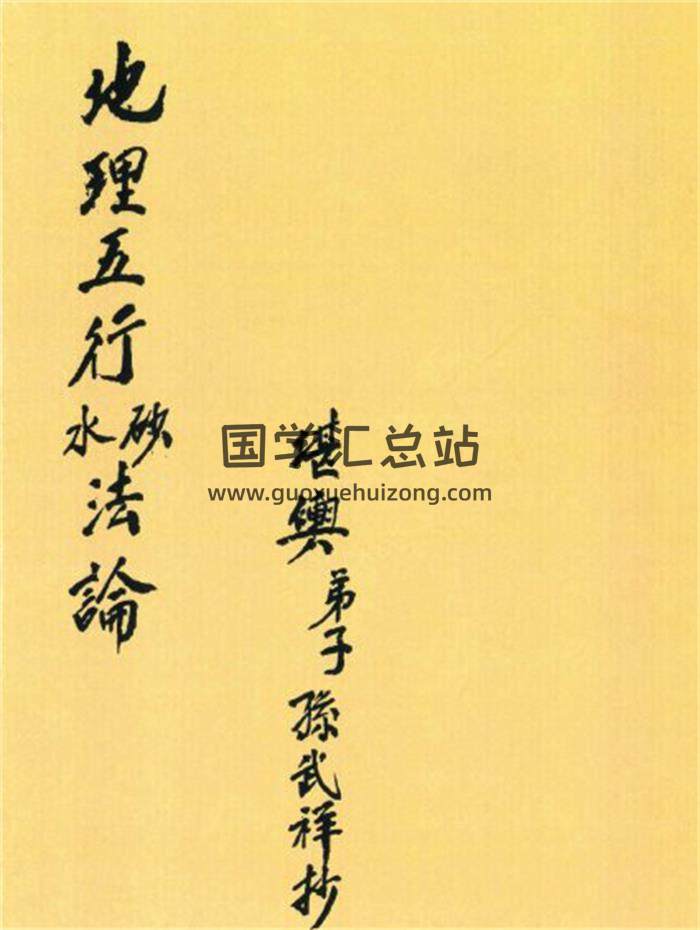 地理五行砂水法論
堪輿弟子孫武祥抄
国学汇总站
www.guoxuehuizong.com